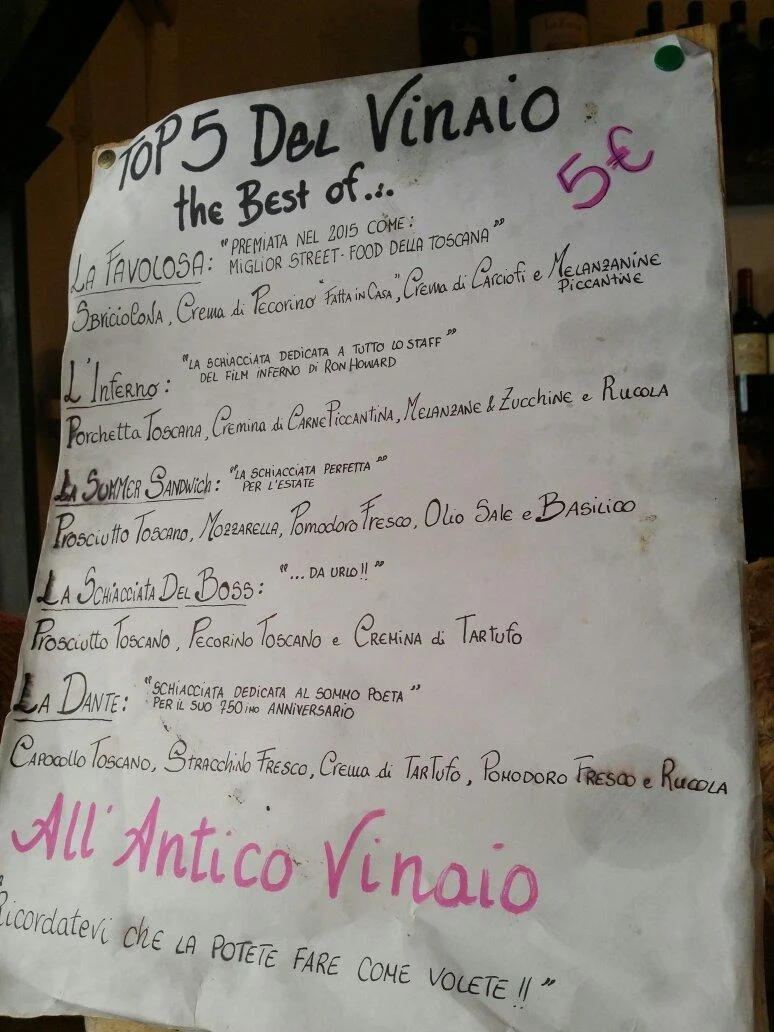 TOP 5 DEL VINAIO
the BEST of...
5€
LA FAVOLOSA: "PREMIATA NEL 2015 COME:
MIGLIOR STREET-FOOD DELLA TOSCANA"
SBRICIOLONA, CREMA di PECORINO "FATTA IN CASA", CREMA di CARCIOFI e MELANZANINE
PICCANTINE
L'INFERNO: "LA SCHIACCIATA DEDICATA A TUTTO LO STAFF"
DEL FILM INFERNO DI RON HOWARD
PORCHETTA TOSCANA, CREMINA di CARNE PICCANTINA, MELANZANE & ZUCCHINE e RUCOLA
LA SUMMER SANDWICH: "LA SCHIACCIATA PERFETTA"
PER L'ESTATE
PROSCIUTTO TOSCANO, MOZZARELLA, POMODORO FRESCO, OLIO SALE e BASILICO
LA SCHIACCIATA DEL BOSS: "... DA URLO!!"
PROSCIUTTO TOSCANO, PECORINO TOSCANO e CREMINA di TARTUFO
LA DANTE: "SCHIACCIATA DEDICATA AL SOMMO POETA"
PER IL SUO 750imo ANNIVERSARIO
CAPOCOLLO TOSCANO, STRACCHINO FRESCO, CREMA di TARTUFO, POMODORO FRESCO e RUCOLA
All'Antico Vinaio
"Ricordatevi CHE LA POTETE FARE COME VOLETE!!"